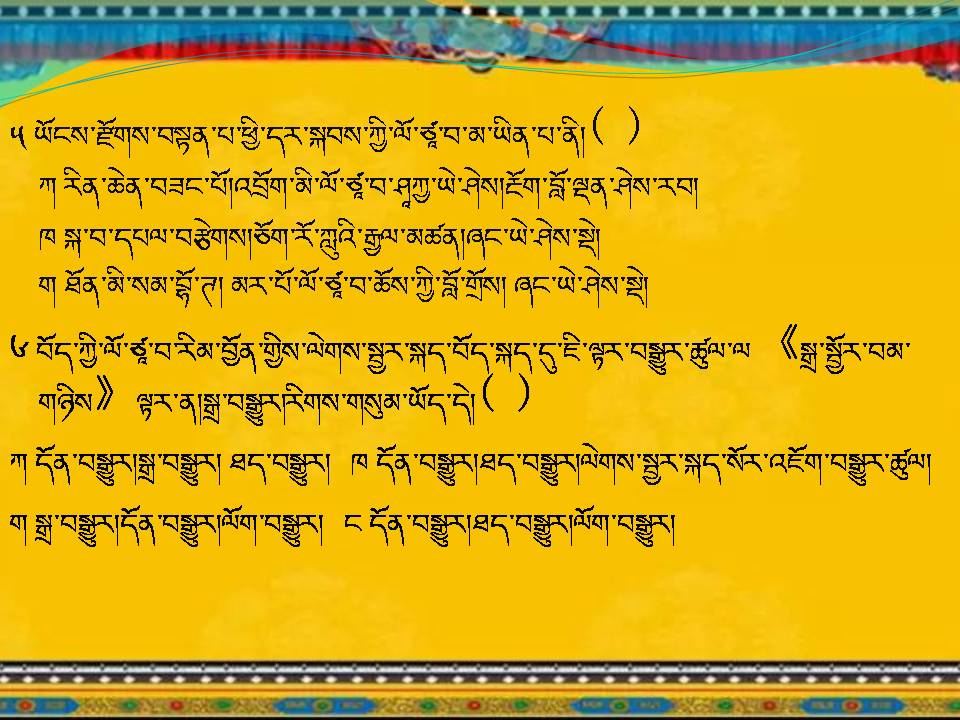 ༥ ཡོངས་རྫོགས་བསྟན་པ་ཕྱི་དར་སྐབས་ཀྱི་ལོ་ཙཱ་བ་མ་ཡིན་པ་ནི། ( )
ཀ རིན་ཆེན་བཟང་པོ།འབྲོག་མི་ལོ་ཙཱ་བ་ཤཱཀྱ་ཡེ་ཤེས།རྔོག་བློ་ལྡན་ཤེས་རབ།
ཁ སྐ་བ་དཔལ་བརྩེགས།ཅོག་རོ་ཀླུའི་རྒྱལ་མཚན།ཞང་ཡེ་ཤེས་སྡེ།
ག ཐོན་མི་སམ་བྷོ་ཊ། མར་པོ་ལོ་ཙཱ་བ་ཆོས་ཀྱི་བློ་གྲོས། ཞང་ཡེ་ཤེས་སྡེ།
༦ བོད་ཀྱི་ལོ་ཙཱ་བ་རིམ་བྱོན་གྱིས་ལེགས་སྦྱར་སྐད་བོད་སྐད་དུ་ཇི་ལྟར་བསྒྱུར་ཚུལ་ལ 《སྒྲ་སྦྱོར་བམ་
གཉིས》 ལྟར་ན།སྒྲ་བསྒྱུར།རིགས་གསུམ་ཡོད་དེ། ( )
ཀ དོན་བསྒྱུར།སྒྲ་བསྒྱུར། ཐད་བསྒྱུར། ཁ དོན་བསྒྱུར།ཐད་བསྒྱུར།ལེགས་སྦྱར་སྐད་སོར་འཇོག་བསྒྱུར་ཚུལ།
ག སྒྲ་བསྒྱུར།དོན་བསྒྱུར།ལོག་བསྒྱུར། ང དོན་བསྒྱུར།ཐད་བསྒྱུར།ལོག་བསྒྱུར།